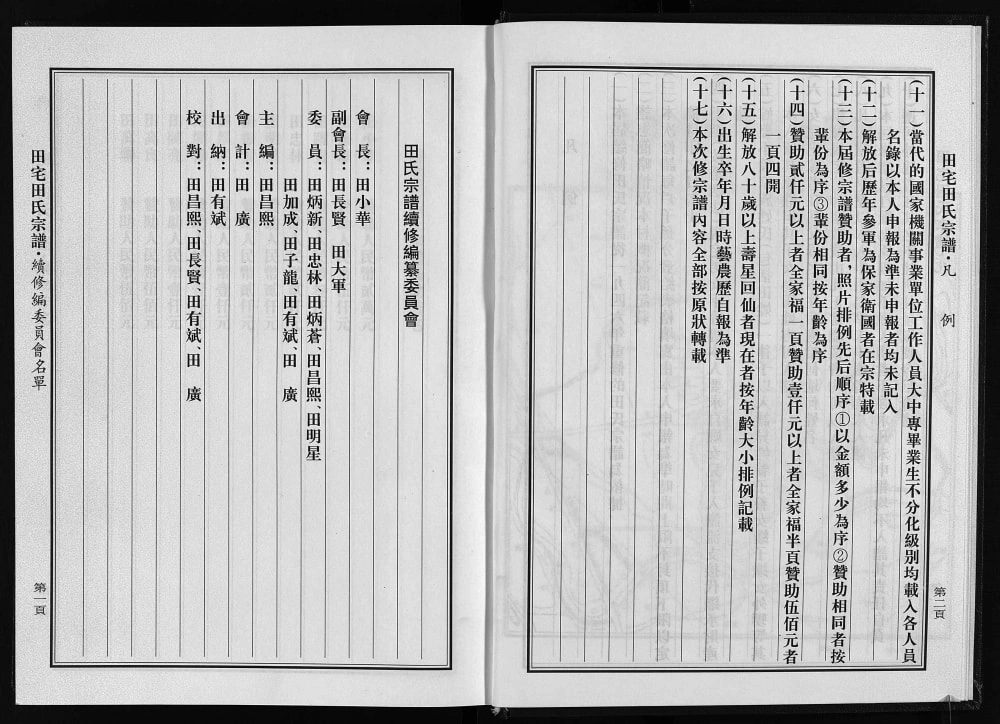 田宅田氏宗譜·凡　例
第二頁
(十一)當代的國家機關事業單位工作人員大中專畢業生不分化級別均載入各人員
名錄以本人申報為準未申報者均未記入
(十二)解放后歷年參軍為保家衛國者在宗特載
(十三)本屆修宗譜贊助者，照片排例先后順序①以金額多少為序②贊助相同者按
輩份為序③輩份相同按年齡為序
(十四)贊助貳仟元以上者全家福一頁贊助壹仟元以上者全家福半頁贊助伍佰元者
一頁四開
(十五)解放八十歲以上壽星回仙者現在者按年齡大小排例記載
(十六)出生卒年月日時藝農歷自報為準
(十七)本次修宗譜內容全部按原狀轉載
田氏宗譜續修編纂委員會
會　長：田小華
副會長：田長賢　田大軍
委　員：田炳新、田忠林、田炳蒼、田昌熙、田明星
田加成、田子龍、田有斌、田　廣
主　編：田昌熙
會　計：田　廣
出　納：田有斌
校　對：田昌熙、田長賢、田有斌、田　廣
田宅田氏宗譜·續修編委員會名單
第一頁